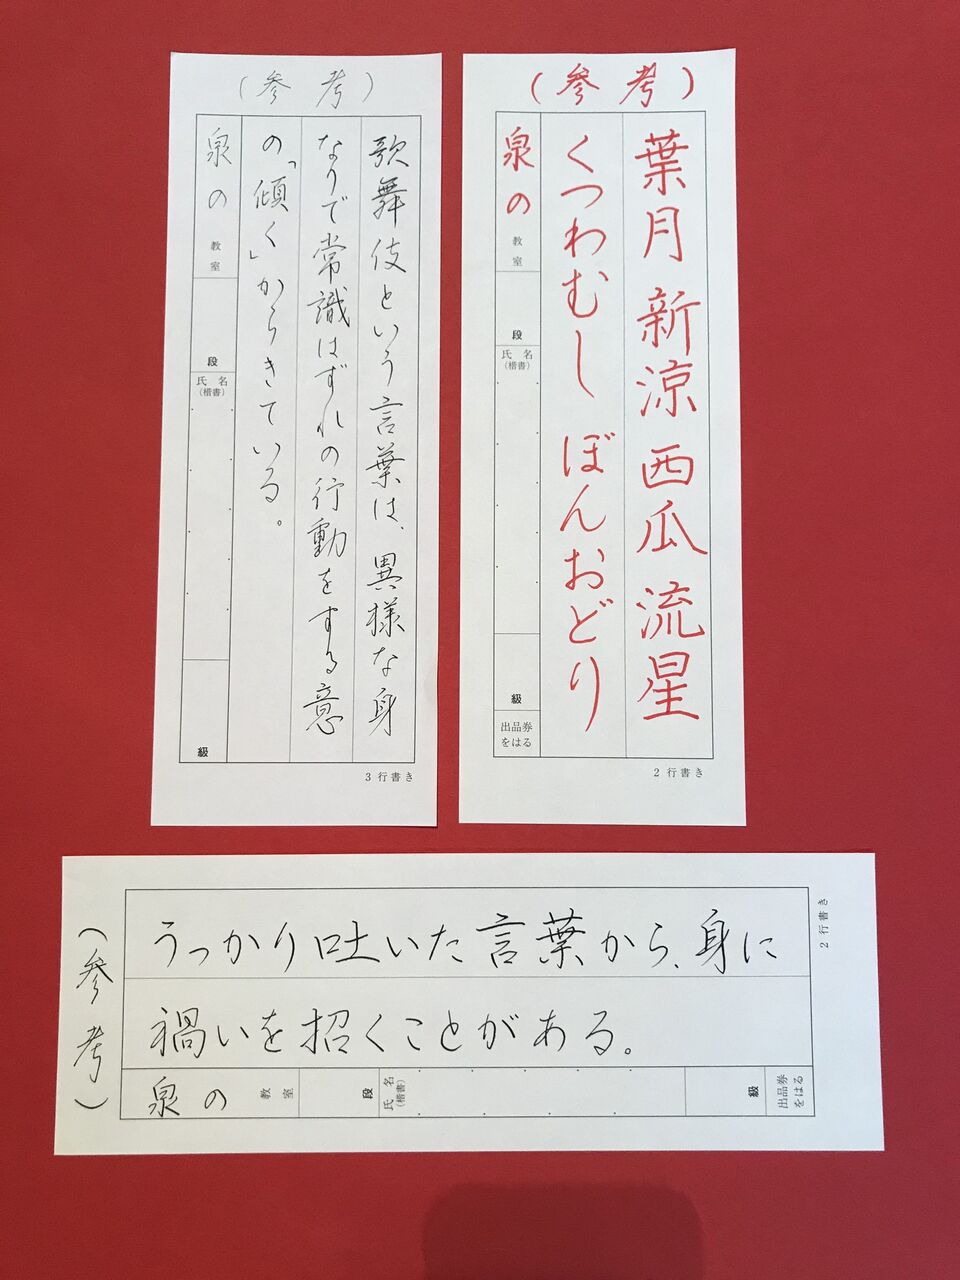 (参考)
葉月 新涼 西瓜 流星
くつわむし ぼんおどり
泉の 教室 段 氏名 (楷書) 級 出品券をはる
2行書き
(参考)
歌舞伎という言葉は、異様な身
なりで常識はずれの行動をする意
の「傾く」からきている。
泉の 教室 段 氏名 (楷書) 級
3行書き
(参考)
うっかり吐いた言葉から、身に
禍いを招くことがある。
泉の 教室 段 氏名 (楷書) 級 出品券をはる
2行書き